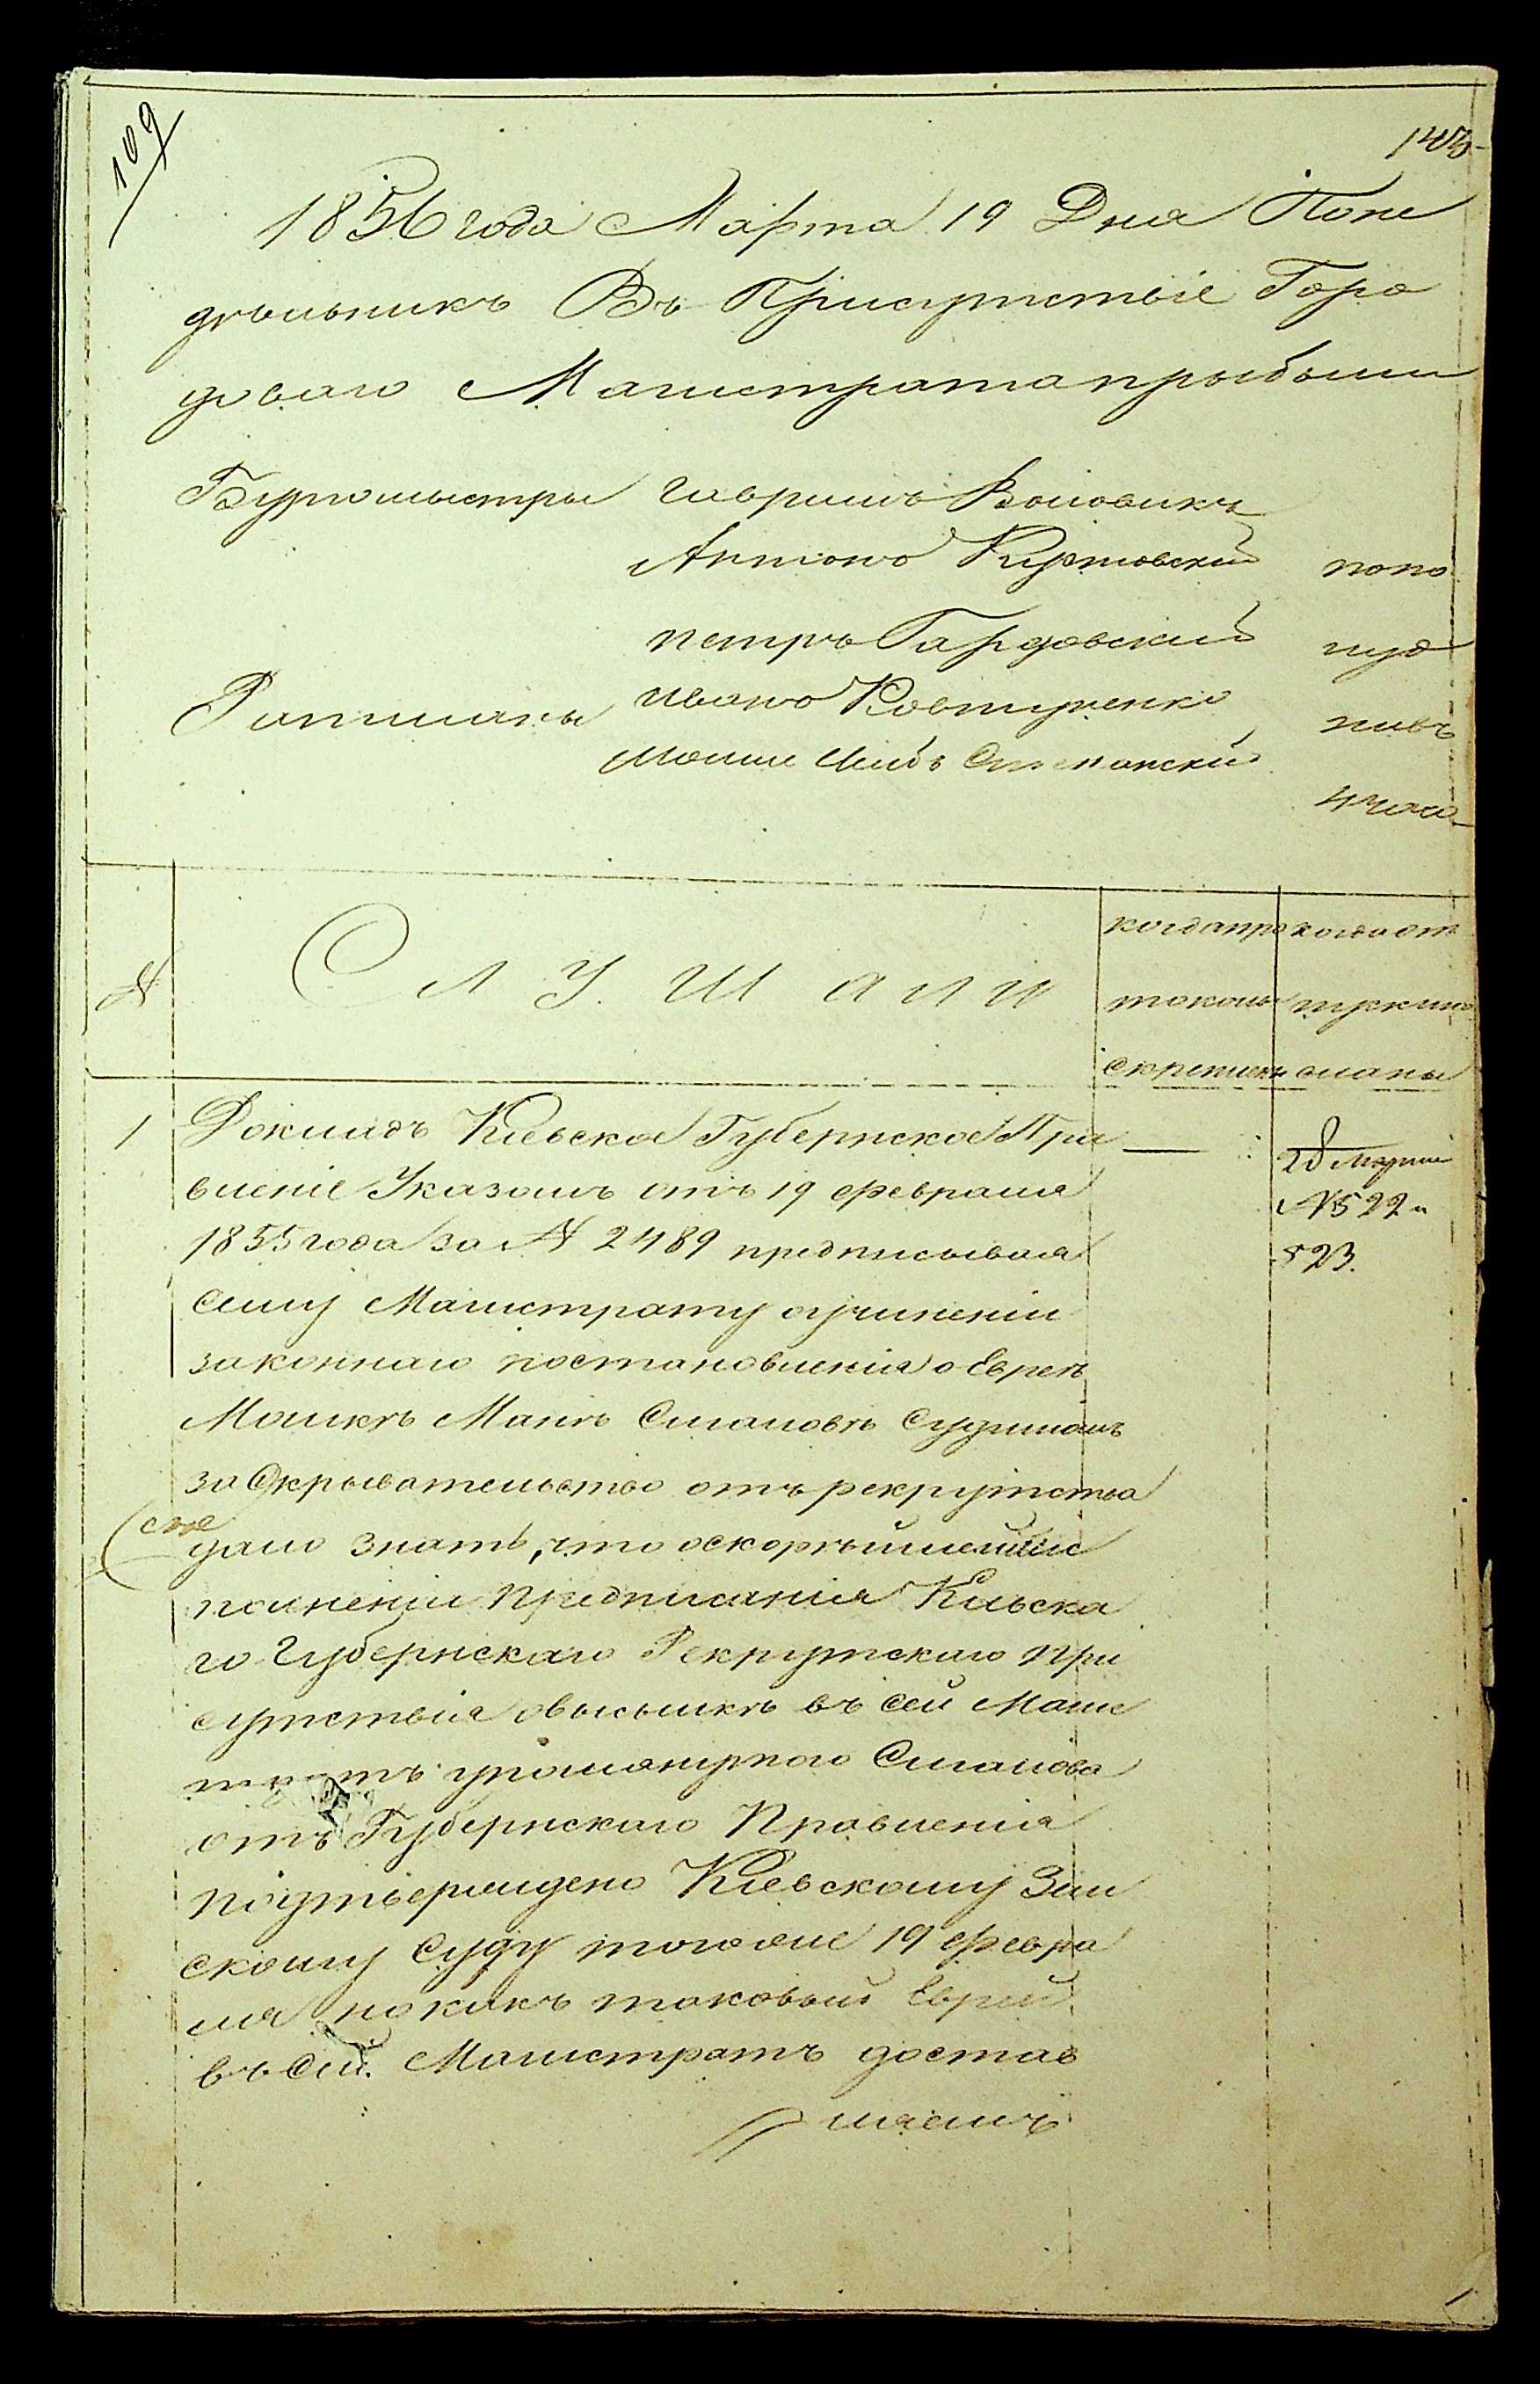 109
143
1856 года Марта 19 Дня Поне
дѣльникъ Въ Присутствіе Горо
доваго Магистрата прыбыли
Бургомыстры Гаврилъ Воловикъ
Антонъ Куртовскій попо
петръ Гардовскій луд
Ратманы Иванъ Ковтуненко нивъ
Мошко Лейбъ 4 часа
№
СЛУШАЛИ
когда про
токолы
скреплены
когда от
пуски по
сланы
1 Докладъ Кіевское Губернское Пра
вленіе Указомъ отъ 19 февраля
1855 года за № 2489 предписывая
сему Магистрату о учиненіи
законнаго постановленія о Евреѣ
Мошкѣ Манѣ Смаловѣ Судимомъ
за Скрывательство отъ рекрутства
дало знать, что о скорѣйшемъ
полненіи предписанія Кіевска
го Губернскаго Рекрутскаго При
сутствія о высылкѣ въ сей Маги
стратъ упомянутаго Смалова
отъ Губернскаго Правленія
подтверждено Кіевскому Зем
скому Суду того же 19 февра
ля но какъ таковый Еврей
въ сей Магистратъ достав
ляемъ
28 Марта
№ 522 и
523.